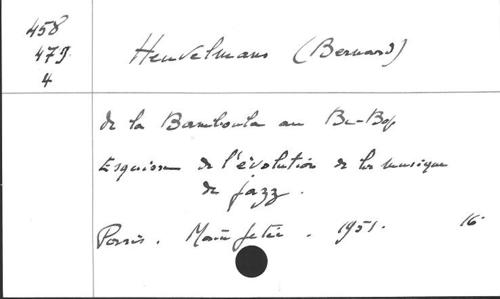 458
479
4
Heuvelmans (Bernard)
de la Bamboula au Be-Bop
Esquisse de l'évolution de la musique
de jazz.
Paris. Main Jetée. 1951. 16